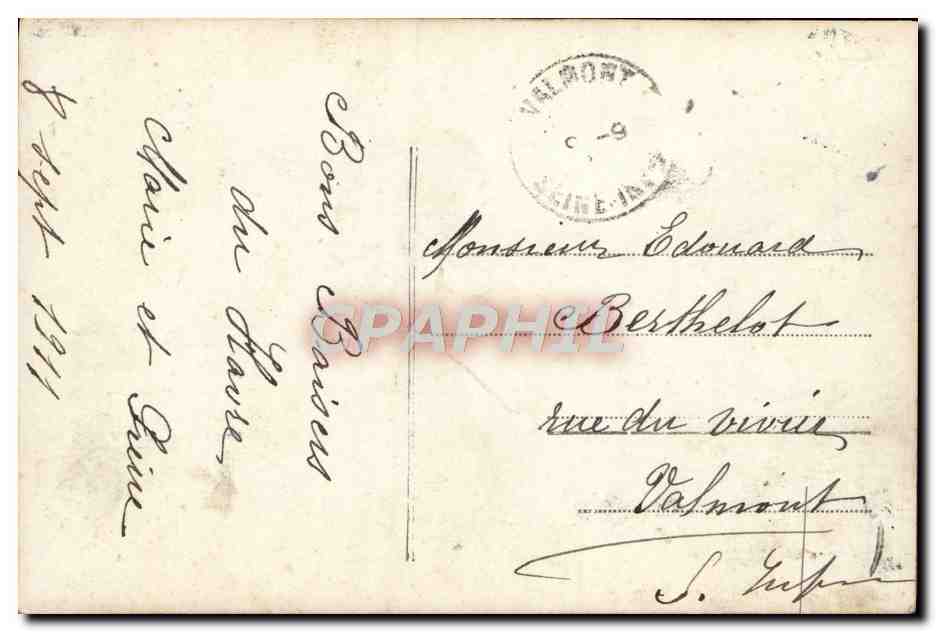 Bons Baisers
du Havre
Marie et
8 sept 1911
VALMONT
9
SEINE-INF
Monsieur Edouard
Berthelot
rue du vivier
Valmont
S. Infre
CPAPHIL